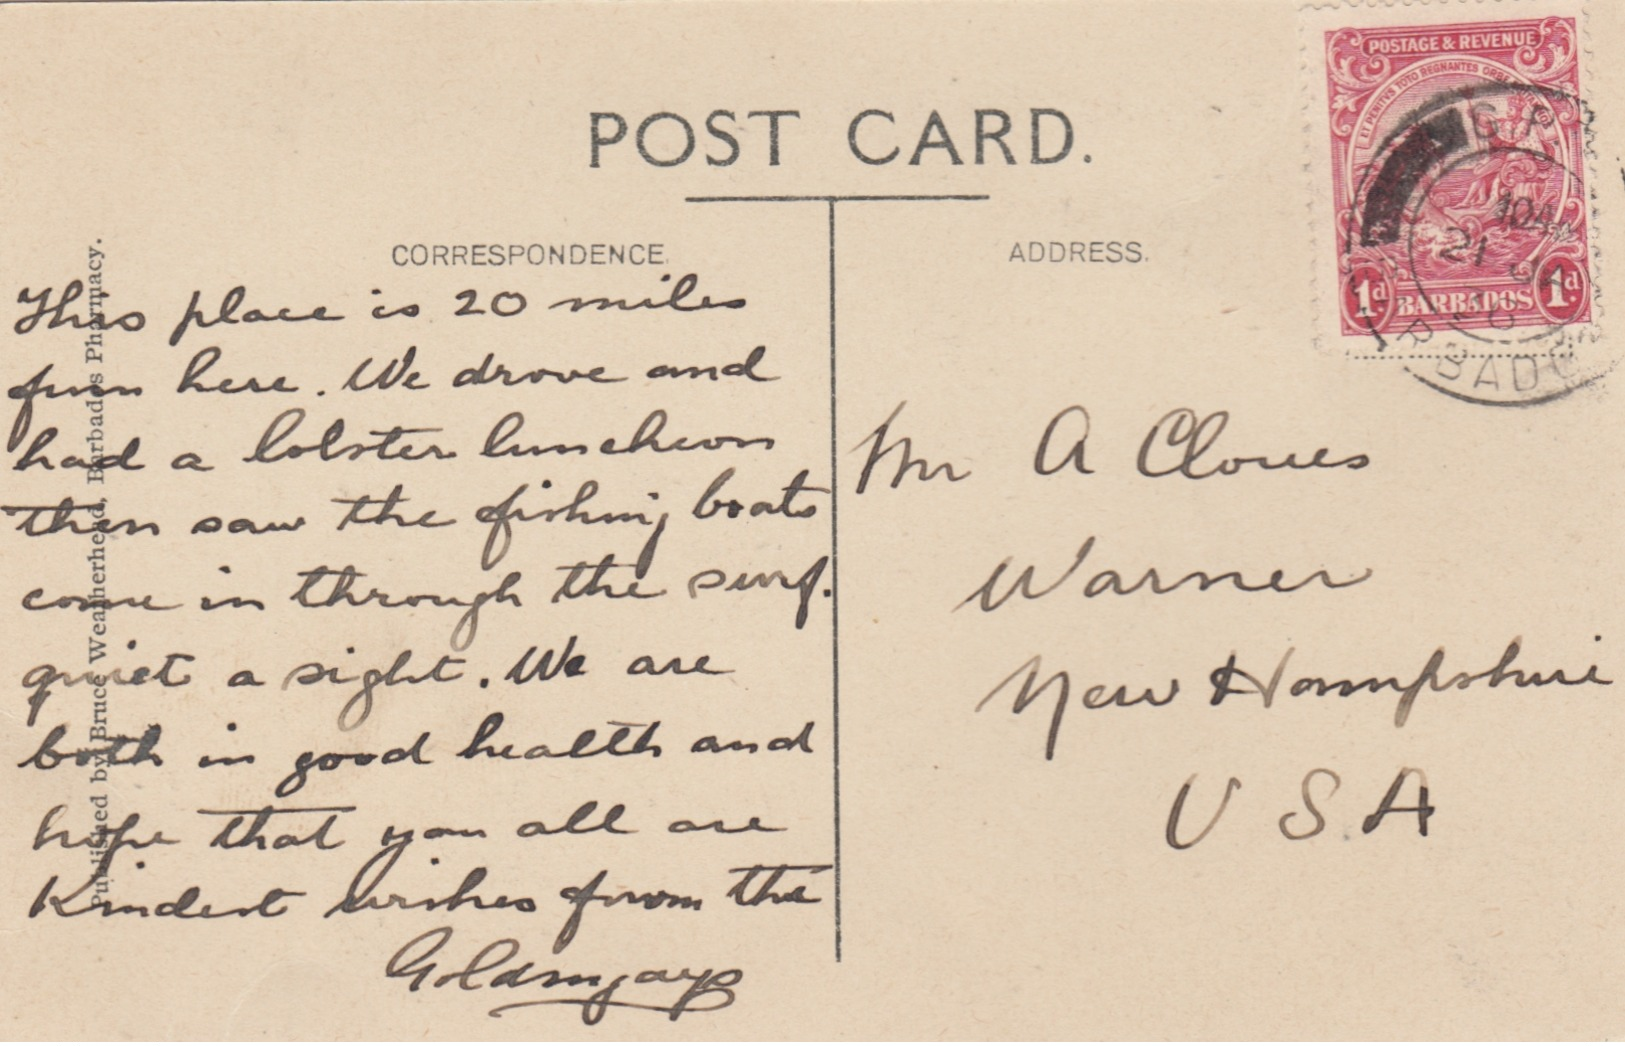 POST CARD.
CORRESPONDENCE.
This place is 20 miles
from here. We drove and
had a lobster luncheon
then saw the fishing boats
come in through the surf.
quiet a sight. We are
both in good health and
hope that you all are
Kindest wishes from the
Published by Bruce Weatherhead, Barbados Pharmacy.
ADDRESS.
Mr A Cloues
Warner
New Hampshire
U S A
POSTAGE & REVENUE
ET PENITUS TOTO REGNANTES ORBE
1d BARBADOS 1d
G.P.
10AM
21 JA
BARBADO